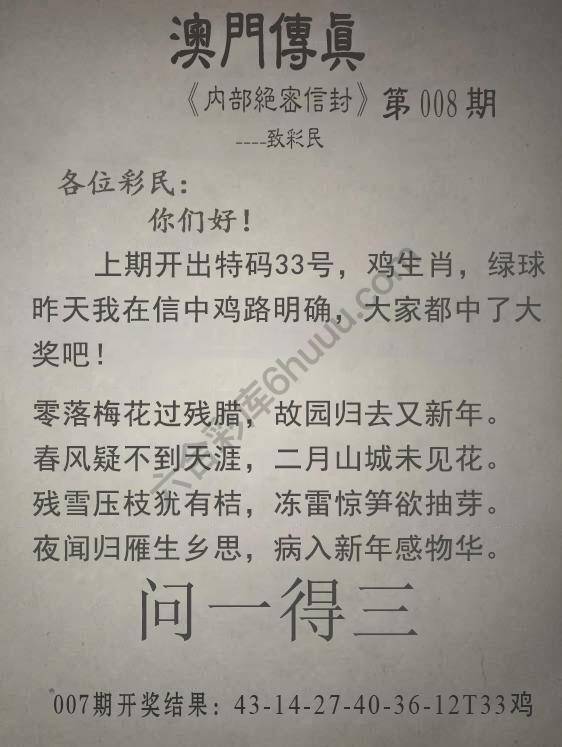 澳門傳眞
《内部絕密信封》第008期
----致彩民
各位彩民：
你们好！
上期开出特码33号，鸡生肖，绿球
昨天我在信中鸡路明确，大家都中了大
奖吧！
零落梅花过残腊，故园归去又新年。
春风疑不到天涯，二月山城未见花。
残雪压枝犹有桔，冻雷惊笋欲抽芽。
夜闻归雁生乡思，病入新年感物华。
问一得三
007期开奖结果：43-14-27-40-36-12T33鸡
六合彩库6huuu.com